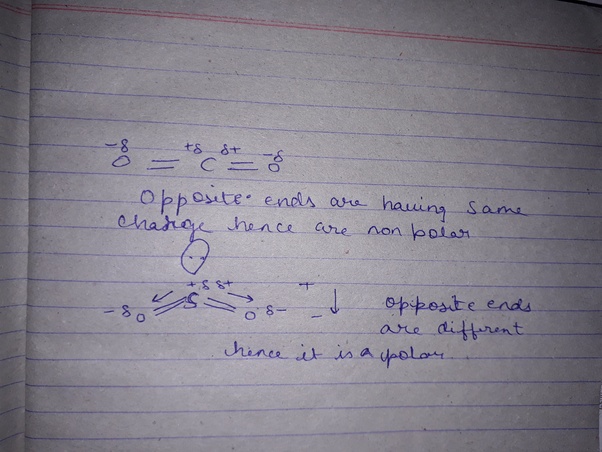 -δ +δ δ+ -δ
O = C = O
Opposite ends are having same
charge hence are non polar
+δ δ+ +
-δ O S O δ- - opposite ends
are different
hence it is a polar